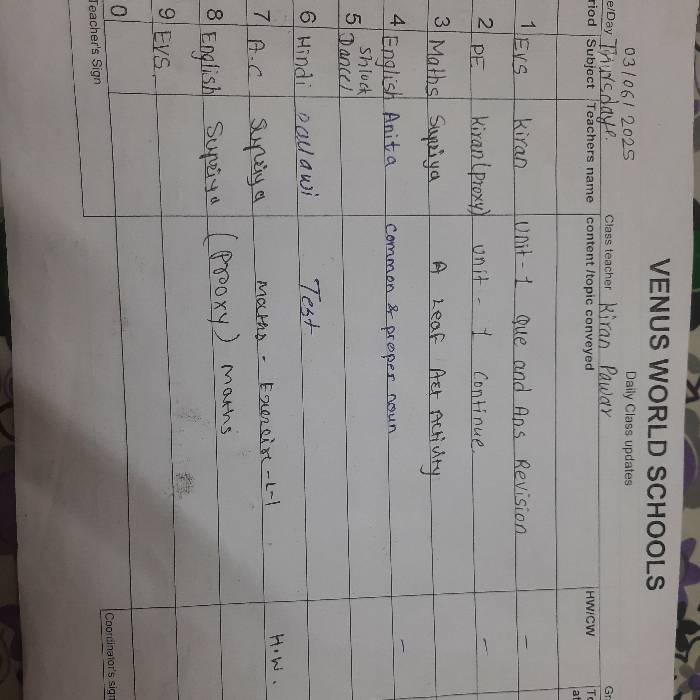 VENUS WORLD SCHOOLS
Daily Class updates
03/06/2025
e/Day Class teacher Kiran Pawar Gr
riod Subject Teachers name content /topic conveyed HW/CW
1 EVS Kiran Unit-1 Que and Ans Revision -
2 PE Kiran (Proxy) Unit - 1 Continue -
3 Maths Supriya A Leaf Art Activity
4 English Anita common & proper noun -
5 Dance/
6 Hindi Test
7 A.C Supriya Maths - Exercise-1-1 H.W.
8 English Supriya (Prooxy) Maths
9 EVS.
0
Teacher's Sign Coordinator's sign